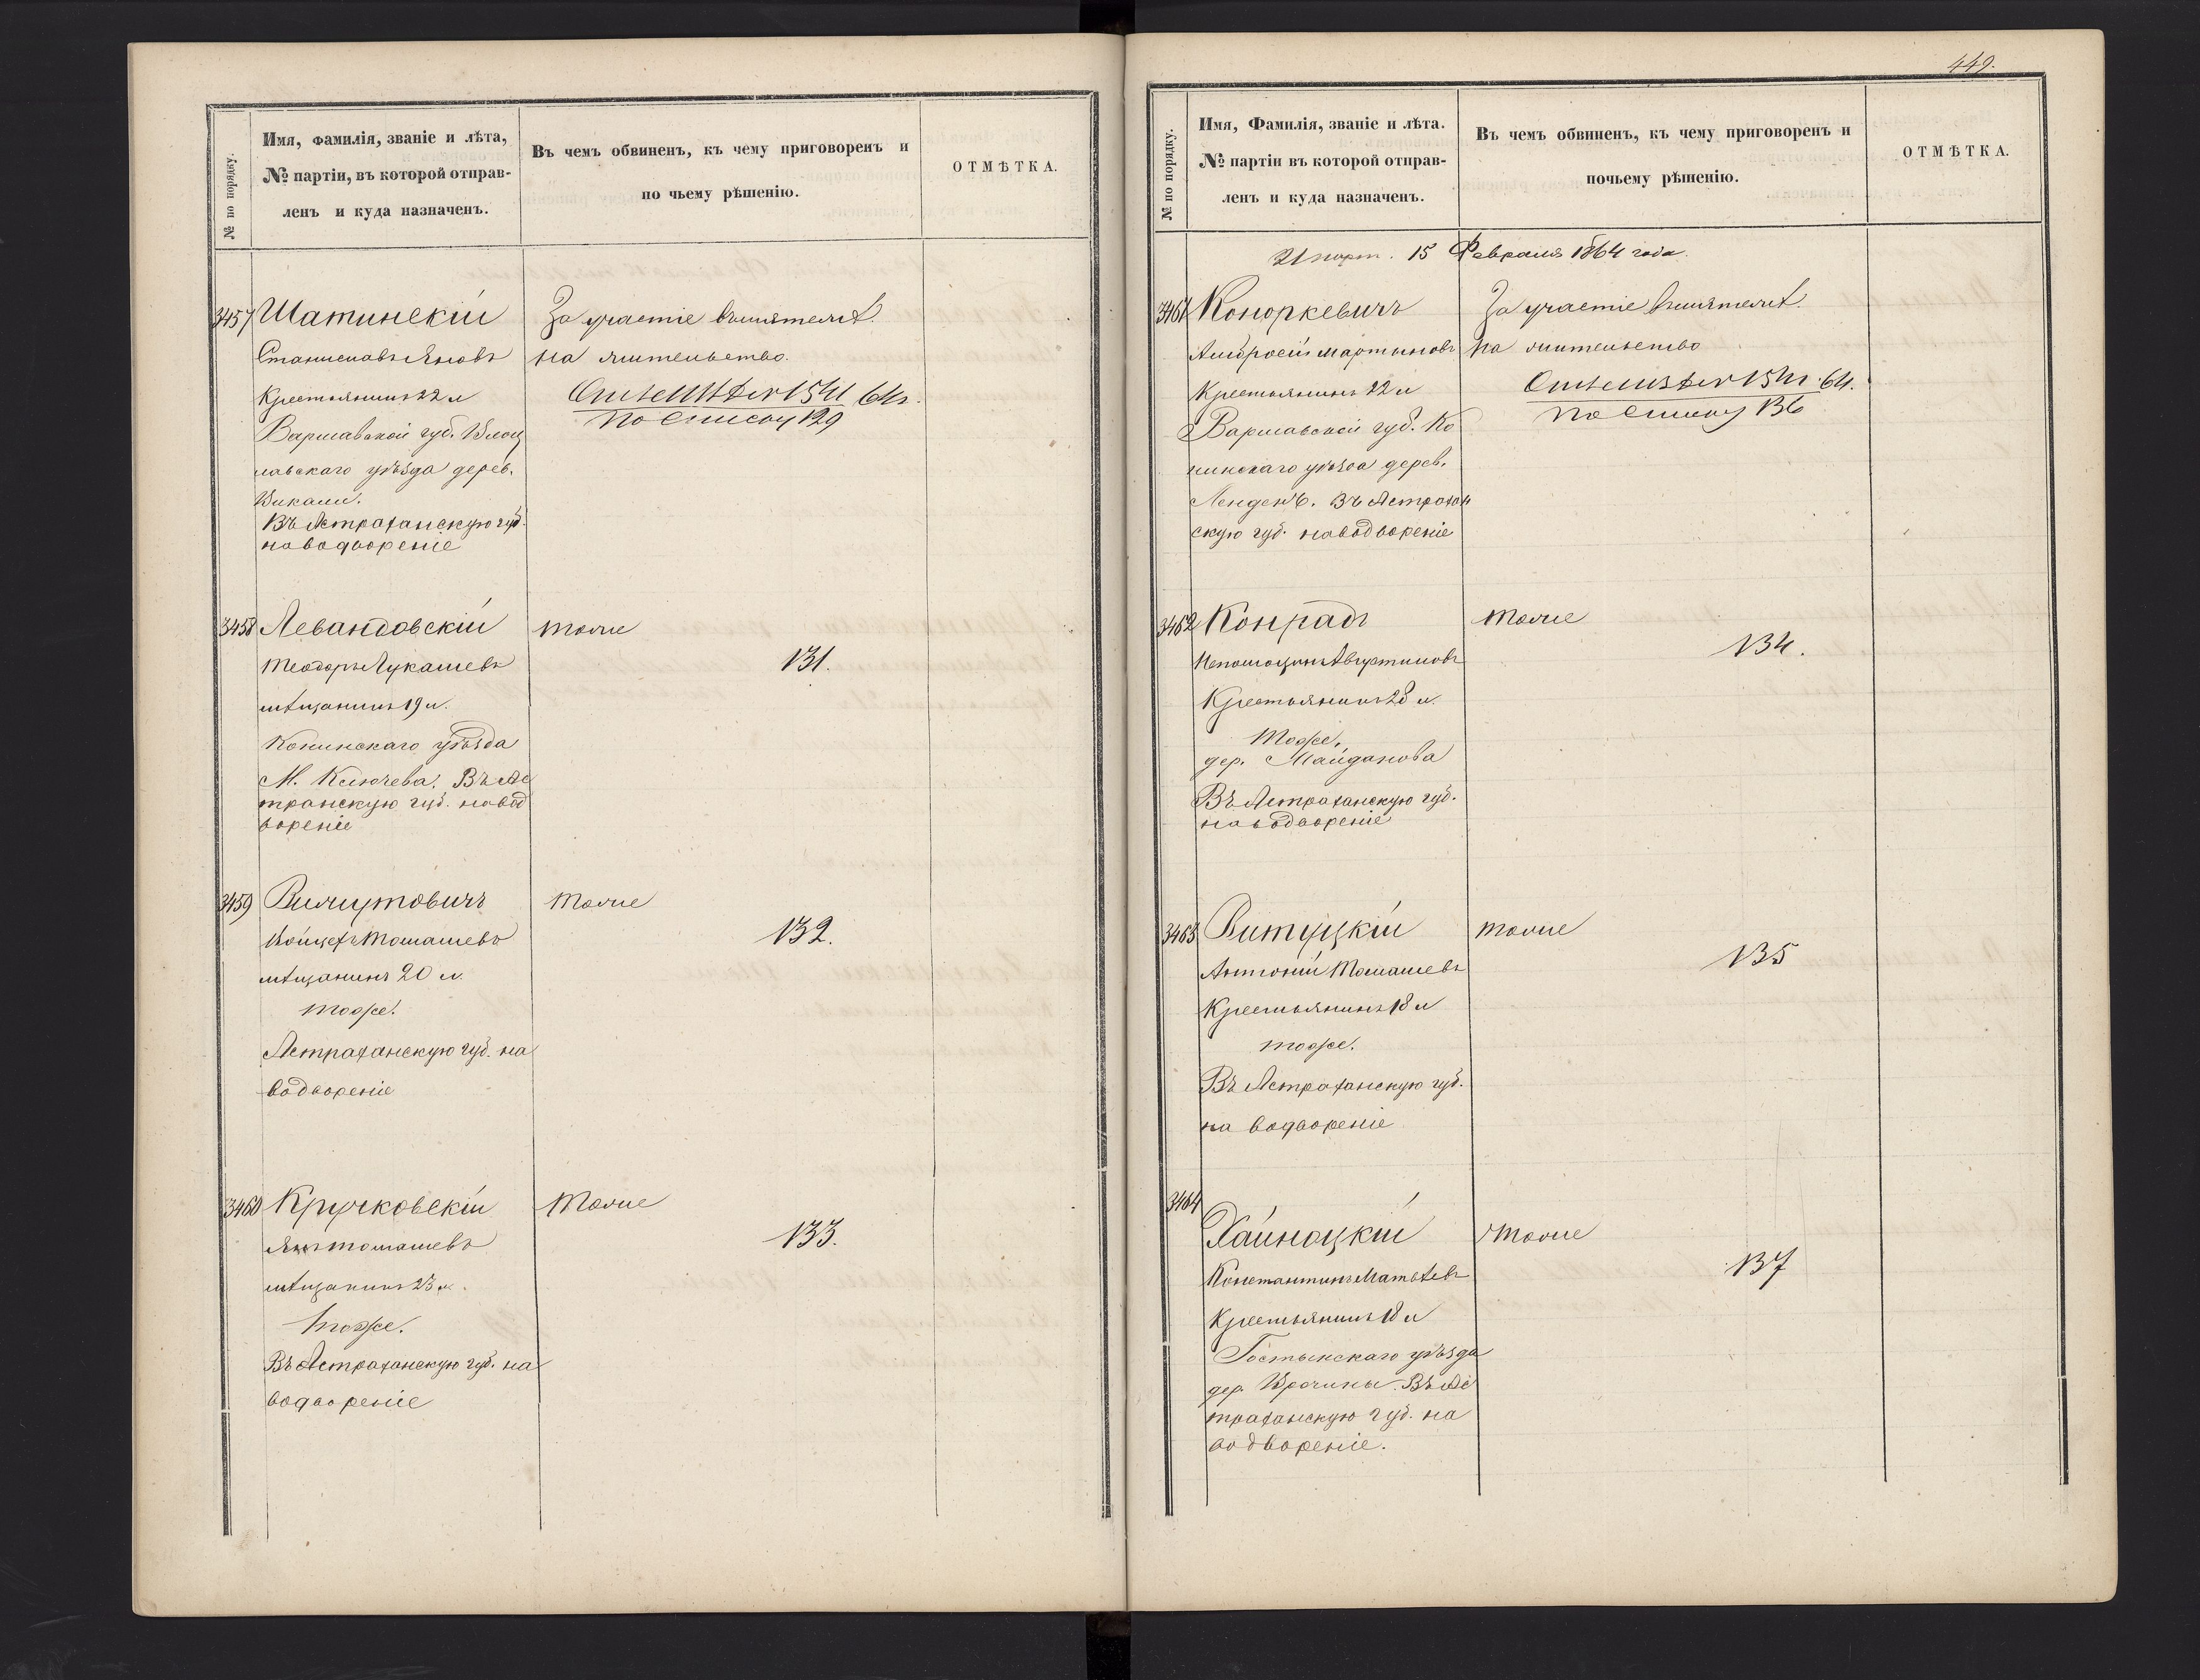 № по порядку.
Имя, фамилія, званіе и лѣта,
№ партіи, въ которой отправ-
ленъ и куда назначенъ.
Въ чемъ обвиненъ, къ чему приговоренъ и
по чьему рѣшенію.
ОТМѢТКА.
3457 Шатинскій
Станиславъ Яновъ
Крестьянинъ 22 л
Варшавской губ. Влоц
лавскаго уѣзда дерев.
Въ Астраханскую губ.
на водвореніе
За участіе въ мятежѣ.
на жительство.
1541 64 г.
По списку 129
3458 Левандовскій
Теодоръ Лукашевъ
мѣщанинъ 19 л.
Конинскаго уѣзда
М. Ключева. Въ Ас
траханскую губ. на вод
вореніе
тоже
131.
3459
Войцехъ Томашевъ
мѣщанинъ 20 л.
тоже.
Астраханскую губ. на
водвореніе
тоже
132.
3460 Кручковскій
Янъ Томашевъ
мѣщанинъ 23 л.
тоже.
Въ Астраханскую губ. на
водвореніе
тоже
133.
449.
№ по порядку.
Имя, Фамилія, званіе и лѣта.
№ партіи въ которой отправ-
ленъ и куда назначенъ.
Въ чемъ обвиненъ, къ чему приговоренъ и
почьему рѣшенію.
ОТМѢТКА.
21 парт. 15 Февраля 1864 года.
3461 Коноркевичъ
Амбросій Мартыновъ
Крестьянинъ 22 л
Варшавской губ. Ко
нинскаго уѣзда дерев.
Ленденъ. Въ Астрахан
скую губ. на водвореніе
За участіе въ мятежѣ.
на жительство
1541. 64.
По списку 136
3462 Конрадъ
Непомоценъ Августиновъ
Крестьянинъ 28 л.
Тоже,
дер. Майданова
Въ Астраханскую губ.
на водвореніе
тоже
134.
3463 Витуцкій
Антоній Томашевъ
Крестьянинъ 18 л
тоже.
Въ Астраханскую губ.
на водвореніе
тоже
135
3464
Хайноцкій
Константинъ Матвѣевъ
Крестьянинъ 18 л
Гостынскаго уѣзда
дер. Въ Ас
траханскую губ. на
водвореніе.
тоже
137